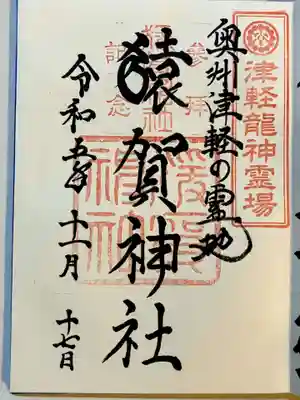 津軽龍神霊場
奥州津軽の霊地
参拝
記念
猿賀神社
令和五年十一月
十七日